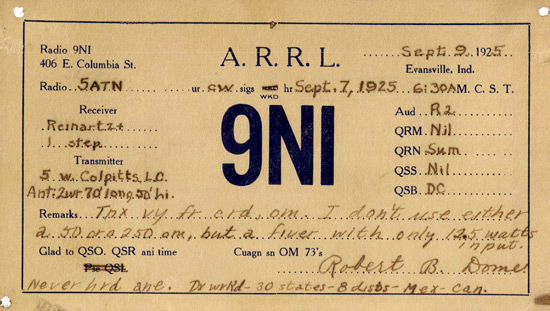 Radio 9NI
A. R. R. L.
Sept. 9, 1925
406 E. Columbia St.
Evansville, Ind.
Radio 5ATN ur. cw. sigs hrd WKD hr Sept. 7, 1925 6:30 A M. C. S. T.
Receiver
Reinartz +
1 step
Transmitter
5 w. Colpitts, L.C.
Ant: 2wr. 70' long 50' hi.
9NI
Aud R2
QRM Nil
QRN Sum
QSS Nil
QSB DC
Remarks Tnx vy fr crd, om. I don't use either
a 50 or a 250 om, but a fiver with only 12.5 watts
input.
Glad to QSO. QSR ani time
Cuagn sn OM 73's
Pse QSL
Robert B. Domes
Never hrd ane. Dx wrkd - 30 states - 8 dists - Mex - Can.